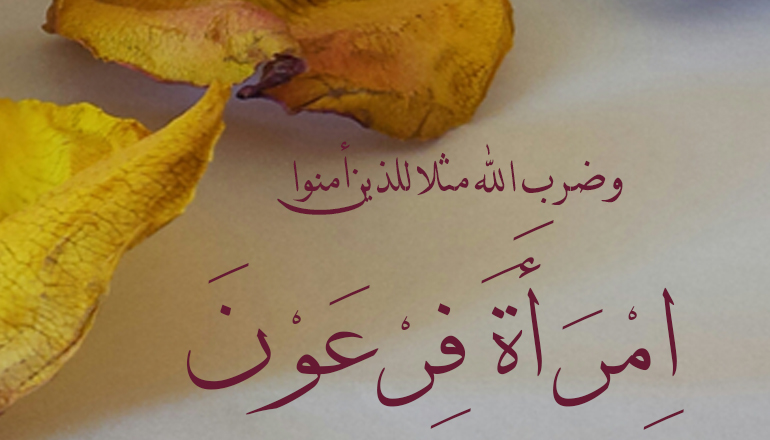 وضرب الله مثلا للذين أمنوا
اِمْرَأَةَ فِرْعَوْنَ